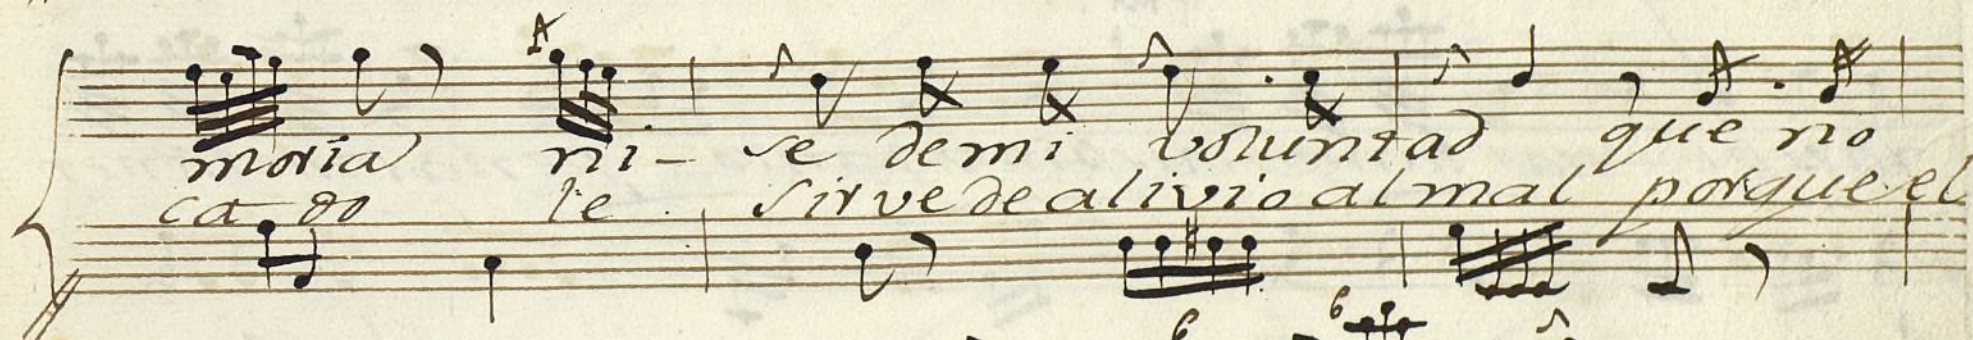 moria ni- se demi voluntad que no
ca do le sirve de alivio al mal porque el
6 6